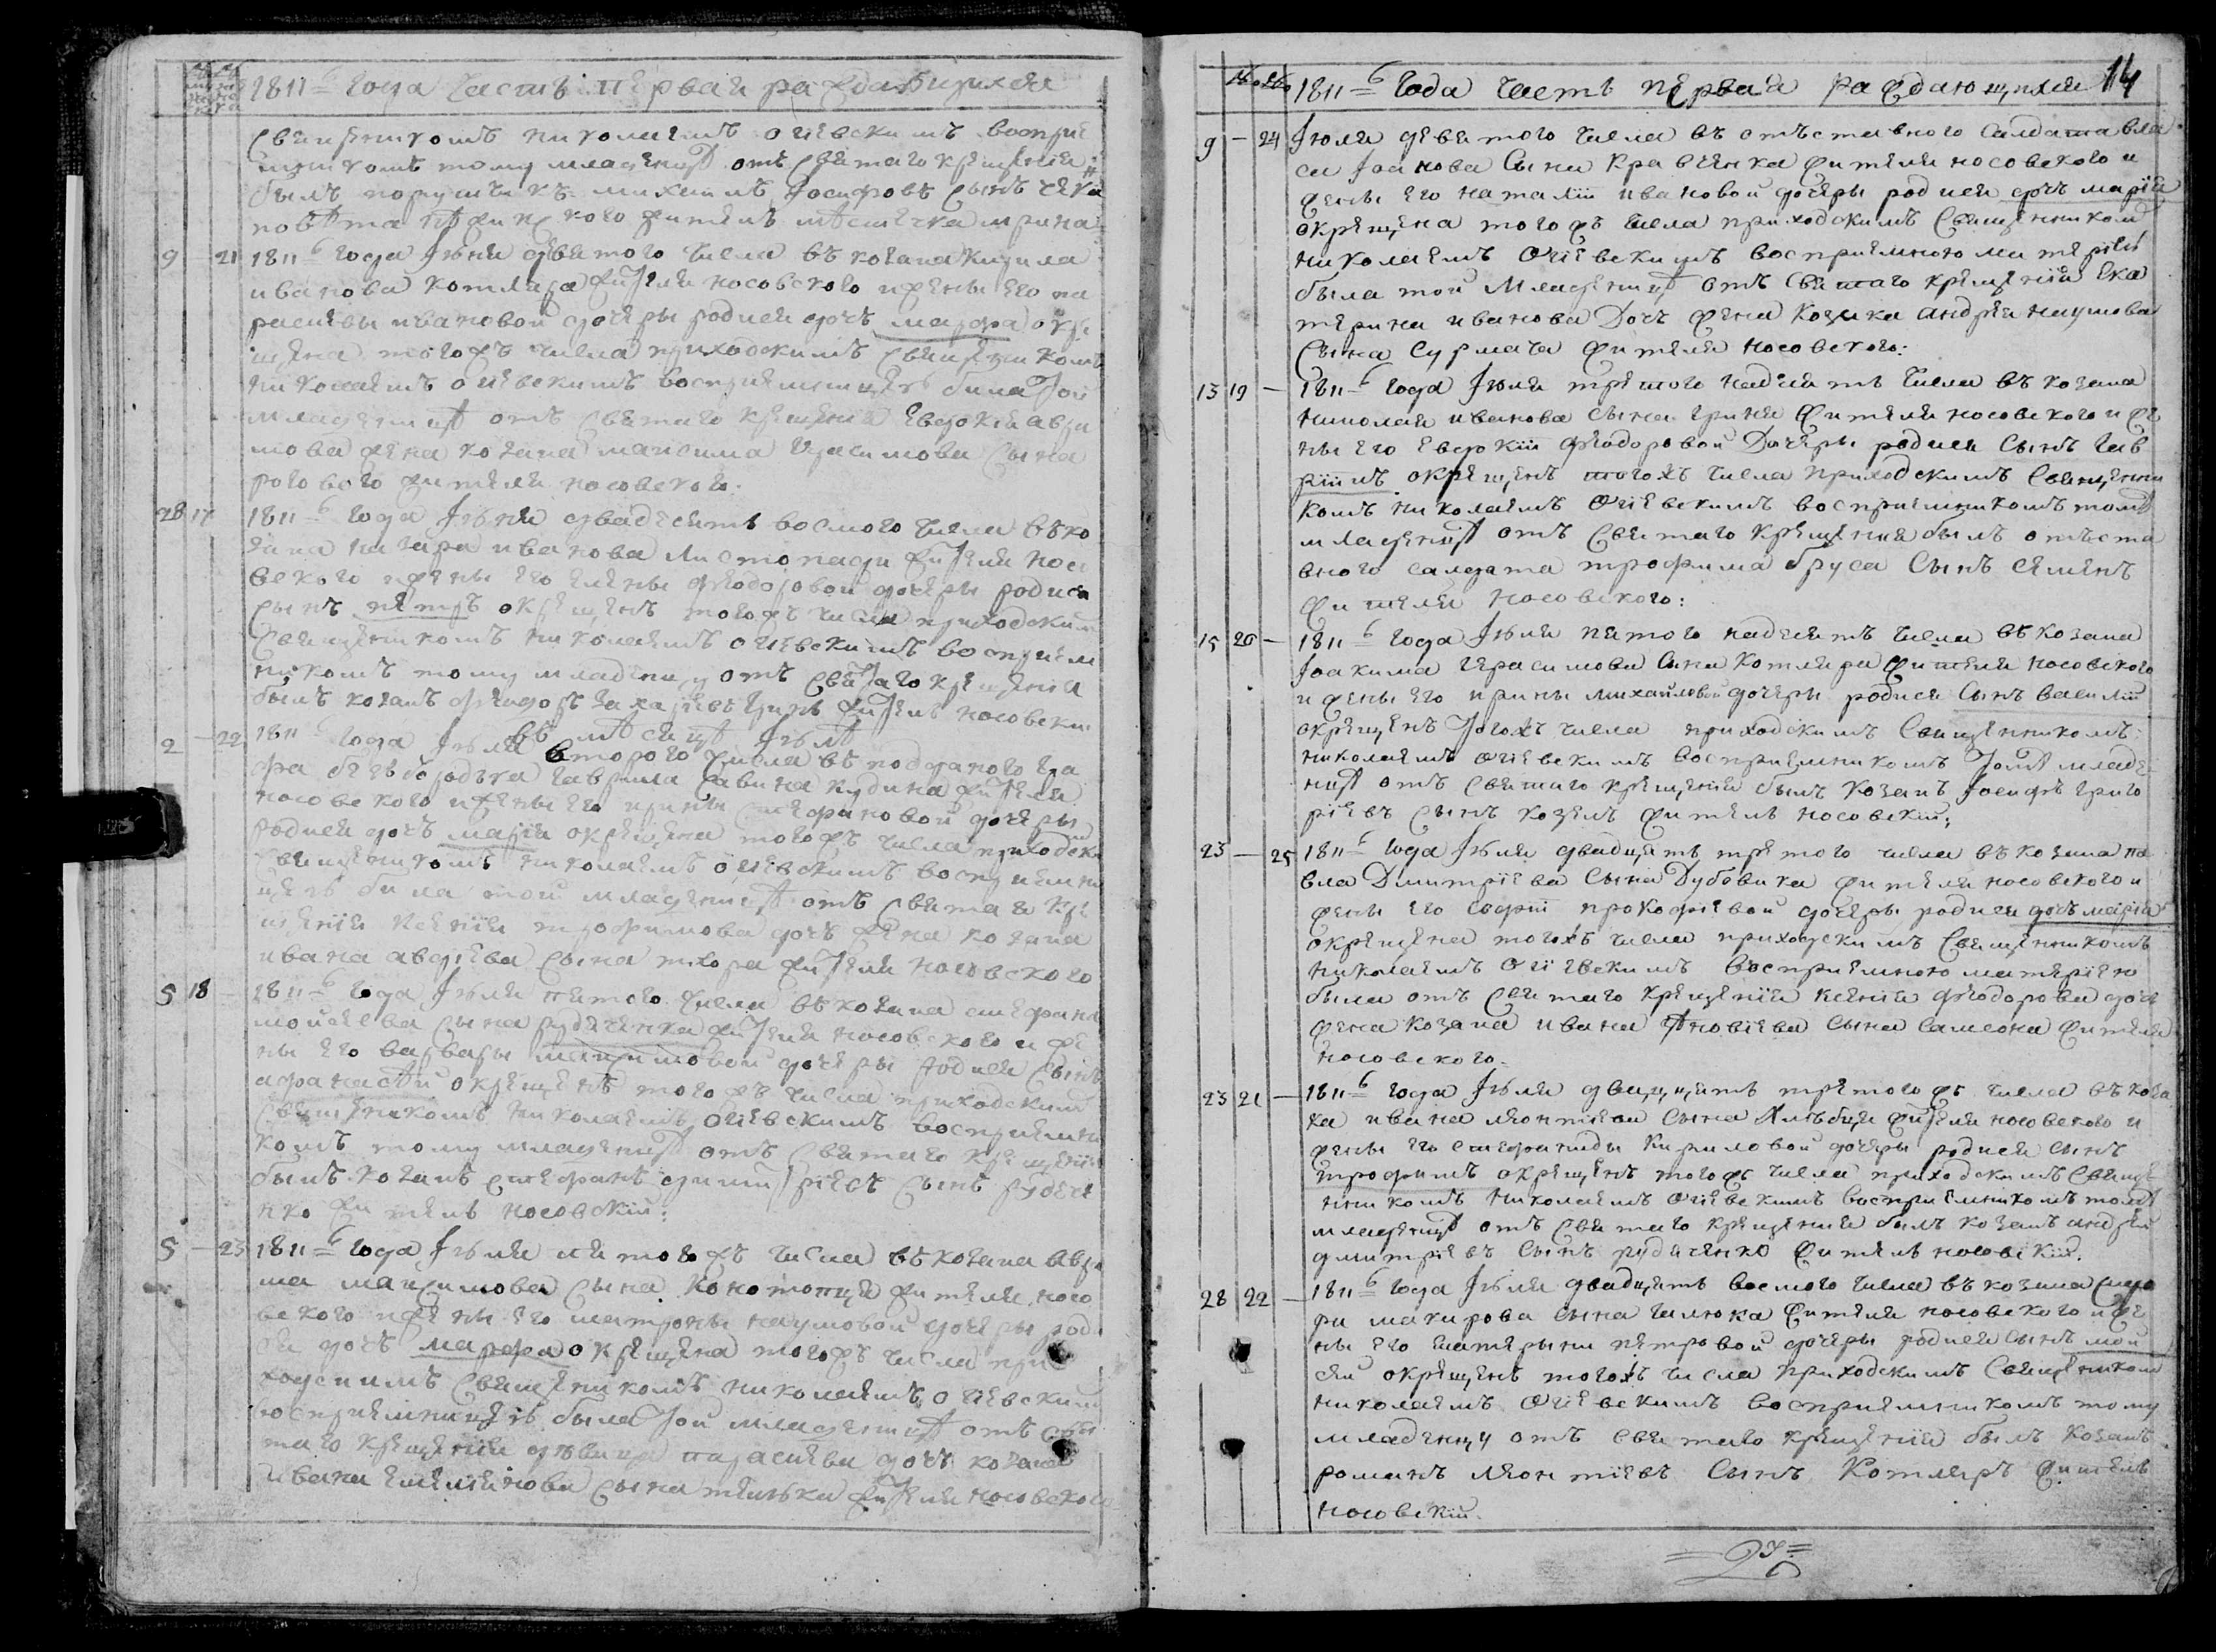 1811 года часть первая
священникомъ николаемъ огиевскимъ восприе
мникомъ тому младенцѣ отъ святаго крещенія
былъ порутчикъ михаилъ іосифовъ сынъ
повѣта жителъ мѣстечка
9 21 1811 года Іюня девятого числа въ козака кирила
иванова котляра жителя носовского и жены его па
раскевы ивановой дочеры родися дочь марфа окре
щена тогожъ числа приходскимъ священникомъ
николаемъ огиевскимъ восприемницею была той
младенцѣ отъ святаго крещенія евдокія авра
мова жена козака максима герасимова сына
рогового жителя носовского:
28 17 1811 года Іюня двадесять восмого числа въ ко
зака назара иванова листопада жителя носо
вского и жены его елены феодоровой дочеры родися
сынъ петръ окрещенъ тогожъ числа приходским
священникомъ николаемъ огиевскимъ восприем
никомъ тому младенцу отъ святаго крещенія
былъ козакъ феодоръ захаріевъ жителъ носовскій
въ мѣсяцѣ Іюлѣ
2 22 1811 года Іюля второго числа въ подданого гра
фа безбородька гаврила савина кудина жителя
носовского и жены его ирины стефановой дочеры
родися дочь марія окрещена тогожъ числа приходским
священникомъ николаемъ огиевскимъ восприемни
цею была той младенцѣ отъ святаго кре
щенія ксенія трофимова дочь жена козака
ивана авдіева сына тхора жителя носовского
5 18 1811 года Іюля пятого числа въ козака стефана
мойсеева сына рудченка жителя носовского и же
ны его варвары максимовой дочеры родися сынъ
афанасѣй окрещенъ тогожъ числа приходским
священникомъ николаемъ огиевскимъ восприемни
комъ тому младенцѣ отъ святаго крещенія
былъ козакъ стефанъ димитріевъ сынъ рудче
нко жителъ носовскій:
5 23 1811 года Іюля пятогожъ числа въ козака авра
ма максимова сына конотопця жителя носо
вского и жены его матроны наумовой дочеры роди
ся дочь марфа окрещена тогожъ числа при
ходскимъ священникомъ николаемъ огиевским
восприемницею была той младенцѣ отъ свя
таго крещенія дѣвица параскева дочь козака
ивана емеліянова сына жителя носовского
1811 года часть первая 14
9 24 Іюля девятого числа въ отъставного салдата вла
са Іоанова сына кравченка жителя носовского и
жены его наталіи ивановой дочеры родися дочь марія
окрещена тогожъ числа приходскимъ священником
николаемъ огіевскимъ восприемною матеріею
была той младенцѣ отъ святаго крещенія ека
терина иванова дочь жена козака андрея наумова
сына сурмача жителя носовского:
13 19 1811 года Іюля третогонадцять числа въ козака
николая иванова сына гриня жителя носовского и же
ны его евдокіи феодоровой дочеры родися сынъ гав
ріилъ окрещенъ тогожъ числа приходскимъ священни
комъ николаемъ огіевскимъ восприемникомъ томѣ
младенцѣ отъ святаго крещенія былъ отъста
вного салдата трофима бруса сынъ семенъ
жителя носовского:
15 20 1811 года Іюля пятогонадцять числа въ козака
Іоакима герасимова сына котляра жителя носовского
и жены его ирины михайловой дочеры родися сынъ василій
окрещенъ тогожъ числа приходскимъ священникомъ
николаемъ огіевскимъ восприемникомъ томѣ младе
нцѣ отъ святаго крещенія былъ козакъ Іосифъ григо
ріевъ сынъ козелъ жителъ носовскій:
23 25 1811 года Іюля двадцять третого числа въ козака па
вла Димитріева сына Дубовика жителя носовского и
жены его прокофіевой дочеры родися дочь марія
окрещена тогожъ числа приходскимъ священникомъ
николаемъ огіевскимъ восприемною матеріею
была отъ святаго крещенія ксенія феодорова дочь
жена козака ивана сына самсона жителя
носовского.
23 21 1811 года Іюля двадцять третогожъ числа въ коза
ка ивана леонтіева сына жителя носовского и
жены его стефаниды кириловой дочеры родися сынъ
трофимъ окрещенъ тогожъ числа приходскимъ свяще
нникомъ николаемъ огіевскимъ восприемникомъ томѣ
младенцѣ отъ святаго крещенія былъ козакъ андрей
дмитріевъ сынъ рудченко жителъ носовскій.
28 22 1811 года Іюля двадцять восмого числа въ козака
макарова сына жителя носовского и же
ны его катерыны петровой дочеры родися сынъ мой
сей окрещенъ тогожъ числа приходскимъ священником
николаемъ огіевскимъ восприемникомъ тому
младенцу отъ святаго крещенія былъ козакъ
романъ леонтіевъ сынъ котляръ жителъ
носовскій.